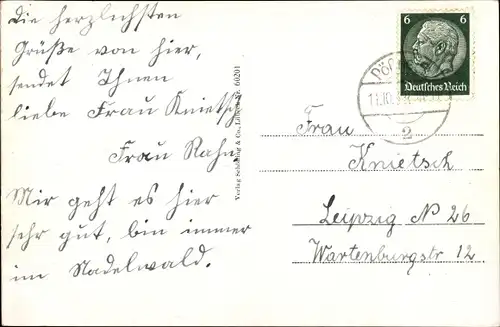 Die herzlichsten
Grüße von hier,
sendet Ihnen
liebe Frau Knietsch
Frau Rahn
Mir geht es hier
sehr gut, bin immer
im Nadelwald.
Verlag Schöning & Co., Lübeck
60201
6 6
Deutsches Reich
2
Frau
Knietsch
Leipzig N 26
Wartenburgstr 12.